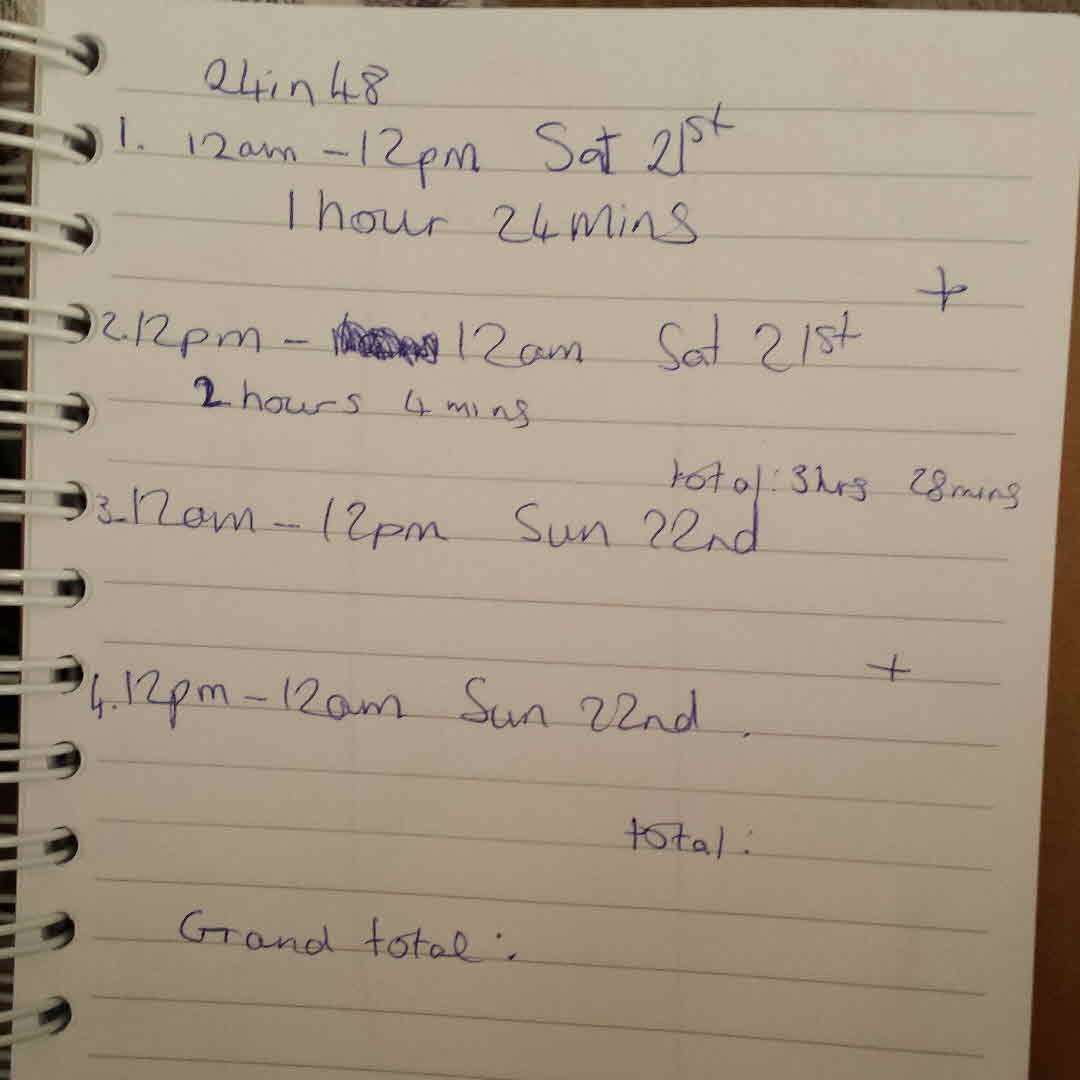 24in48
1. 12am - 12pm Sat 21st
1 hour 24 mins
+
2. 12pm - 12am Sat 21st
2 hours 4 mins
total: 3hrs 28mins
3. 12am - 12pm Sun 22nd
+
4. 12pm - 12am Sun 22nd.
total:
Grand total: